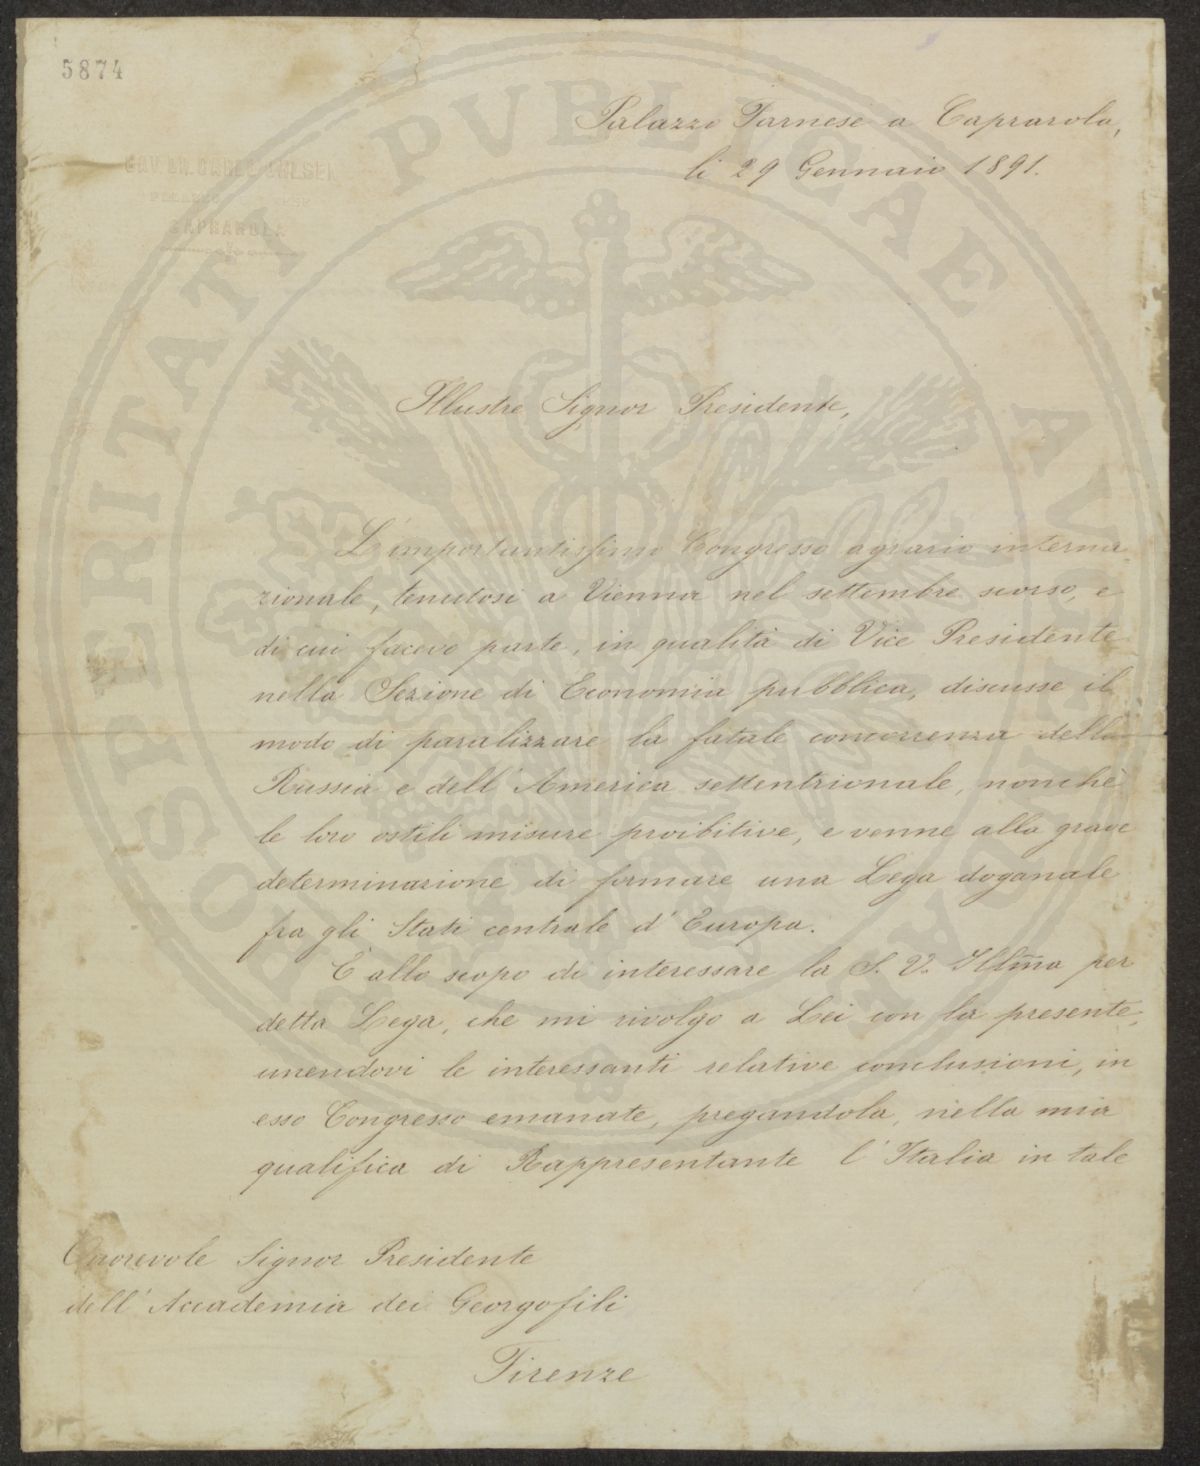 5874
Palazzo Farnese a Caprarola,
li 29 Gennaio 1891.
CAV. DR. CARLO OHLSEN
PALAZZO FARNESE
CAPRAROLA
PROSPERITATI PVBLICAE AVGENDAE
Illustre Signor Presidente,
L'importantissimo Congresso agrario interna
zionale, tenutosi a Vienna nel settembre scorso, e
di cui facevo parte, in qualità di Vice Presidente
nella Sezione di Economia pubblica, discusse il
modo di paralizzare la fatale concorrenza della
Russia e dell'America settentrionale, nonchè
le loro ostili misure proibitive, e venne alla grave
determinazione di formare una Lega doganale
fra gli Stati centrale d'Europa.
È allo scopo di interessare la S. V. Illma per
detta Lega, che mi rivolgo a Lei con la presente,
unendovi le interessanti relative conclusioni, in
esso Congresso emanate, pregandola, nella mia
qualifica di Rappresentante l'Italia in tale
Onorevole Signor Presidente
dell'Accademia dei Georgofili
Firenze